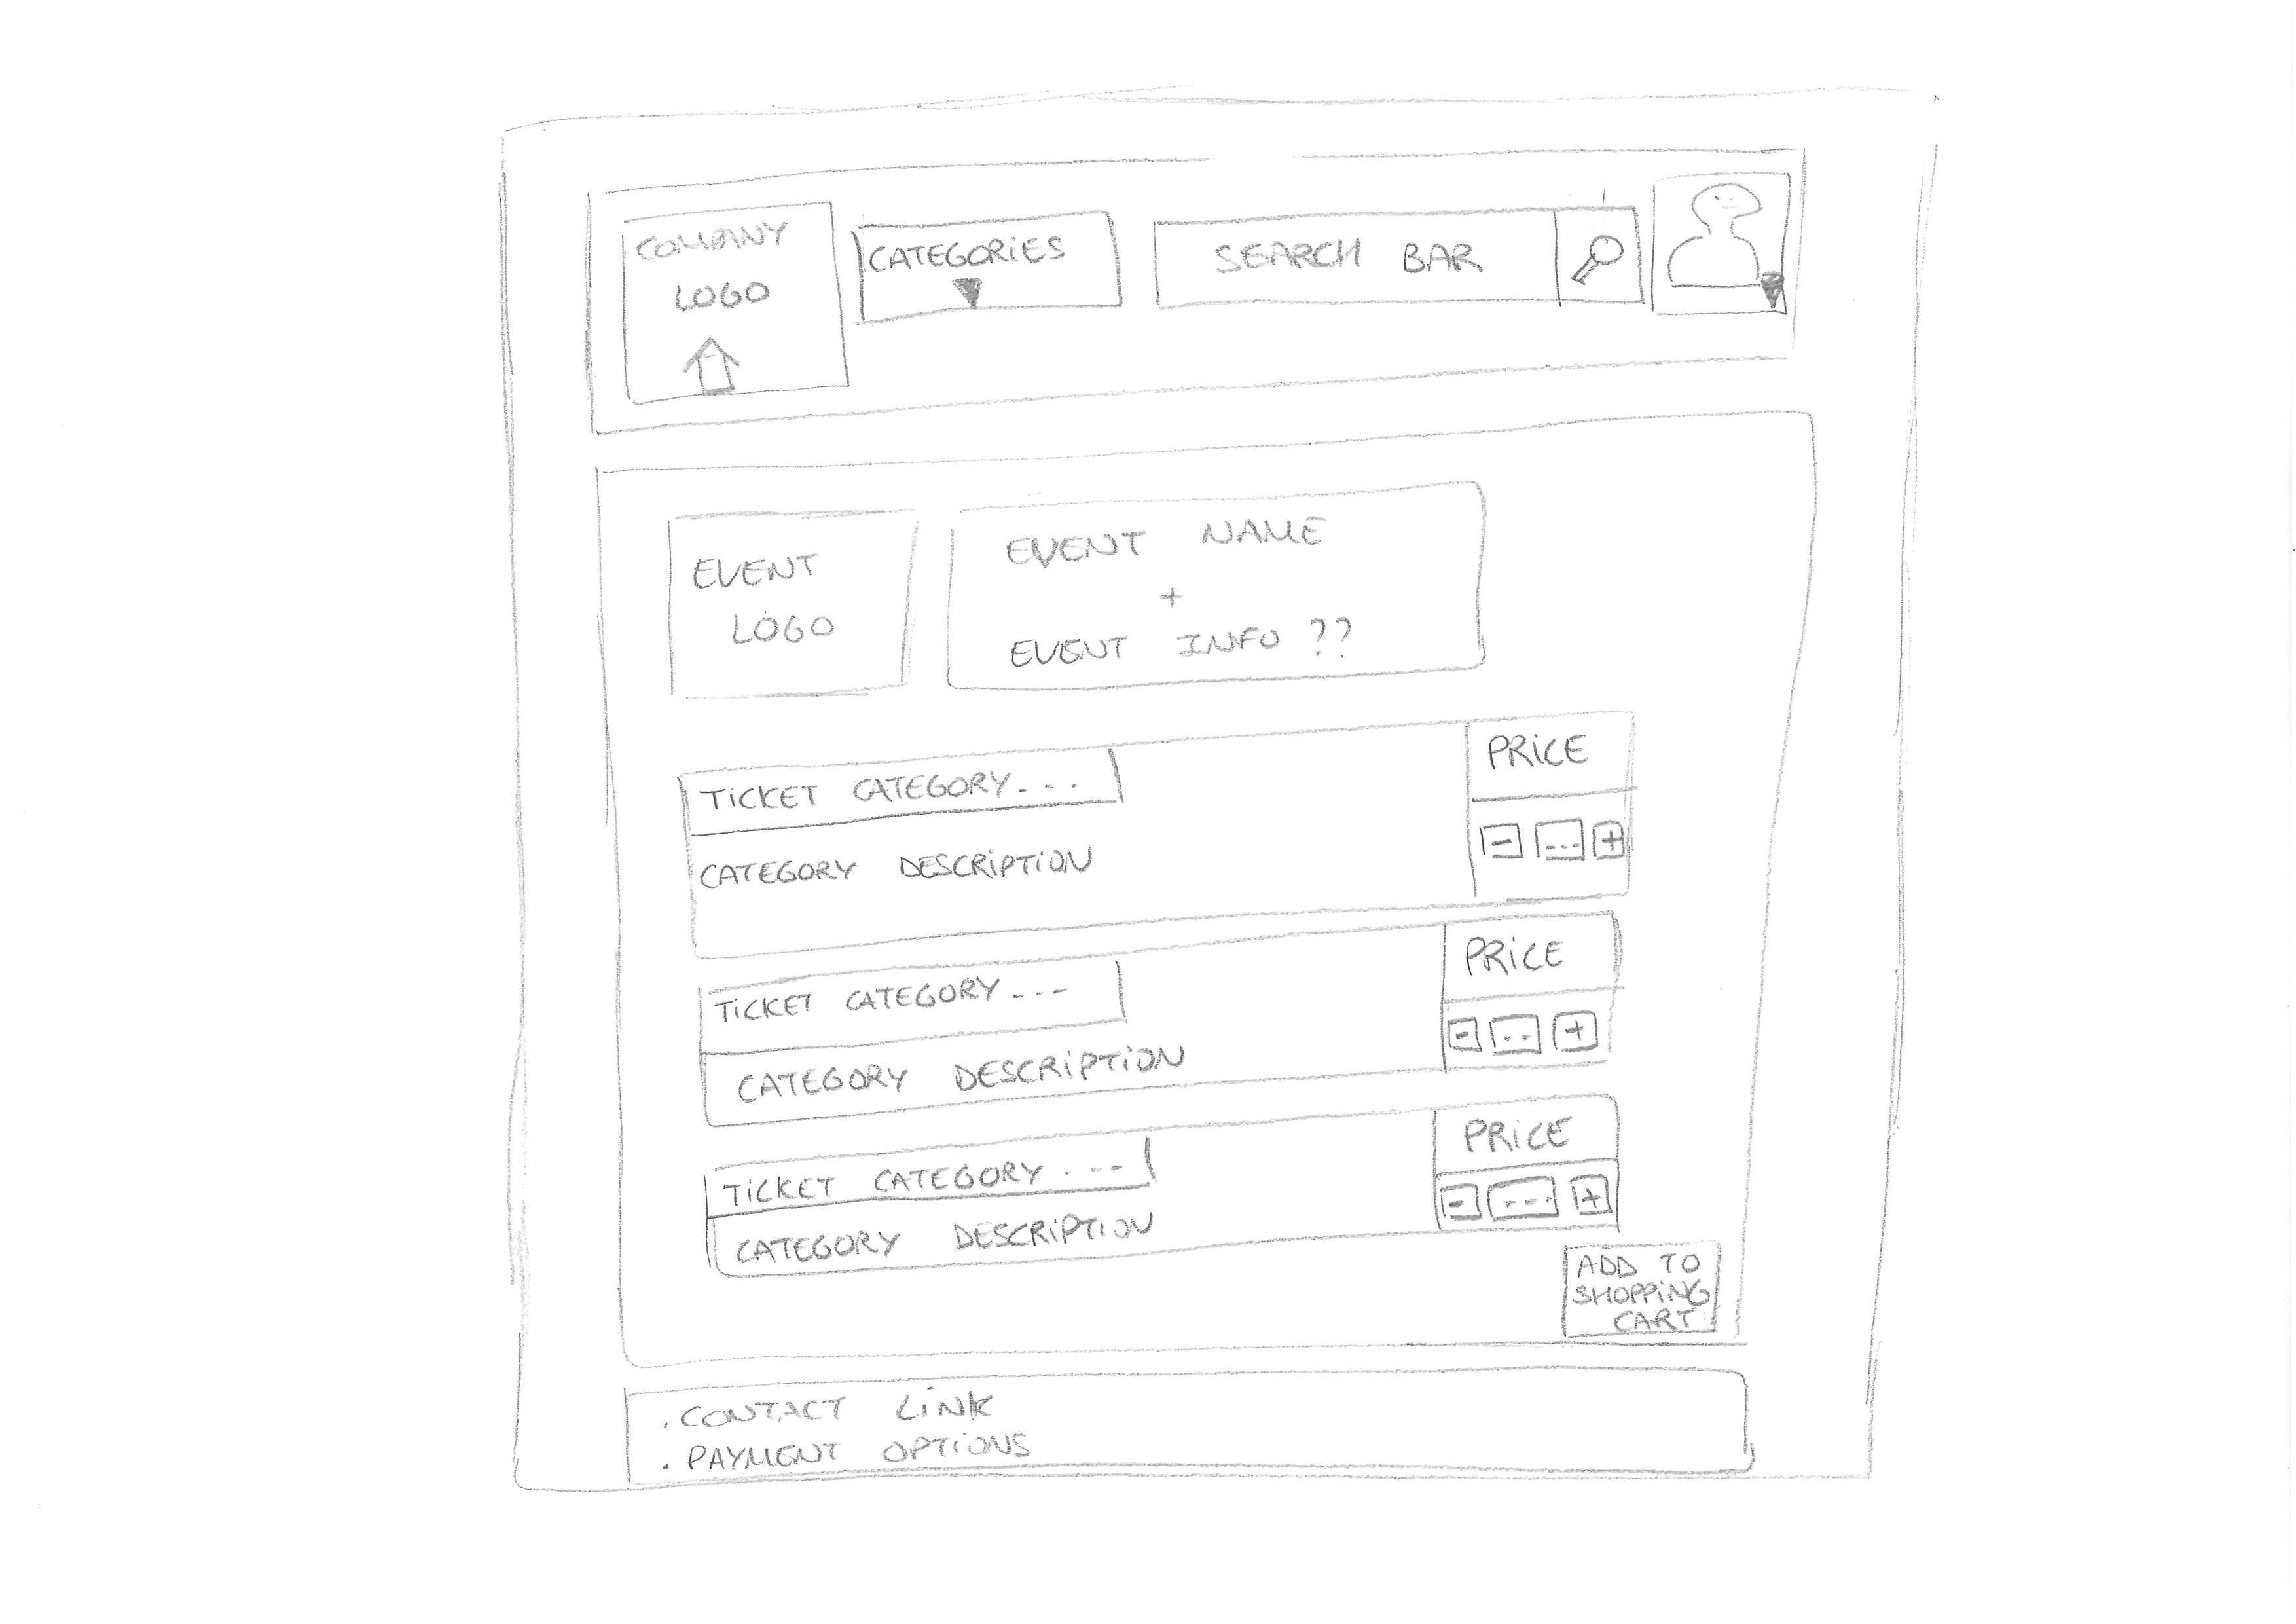 COMPANY
LOGO
CATEGORIES
SEARCH BAR
EVENT
LOGO
EVENT NAME
+
EVENT INFO ??
TICKET CATEGORY ...
PRICE
- ... +
CATEGORY DESCRIPTION
TICKET CATEGORY ---
PRICE
- ... +
CATEGORY DESCRIPTION
TICKET CATEGORY ---
PRICE
- ... +
CATEGORY DESCRIPTION
ADD TO
SHOPPING
CART
. CONTACT LINK
. PAYMENT OPTIONS